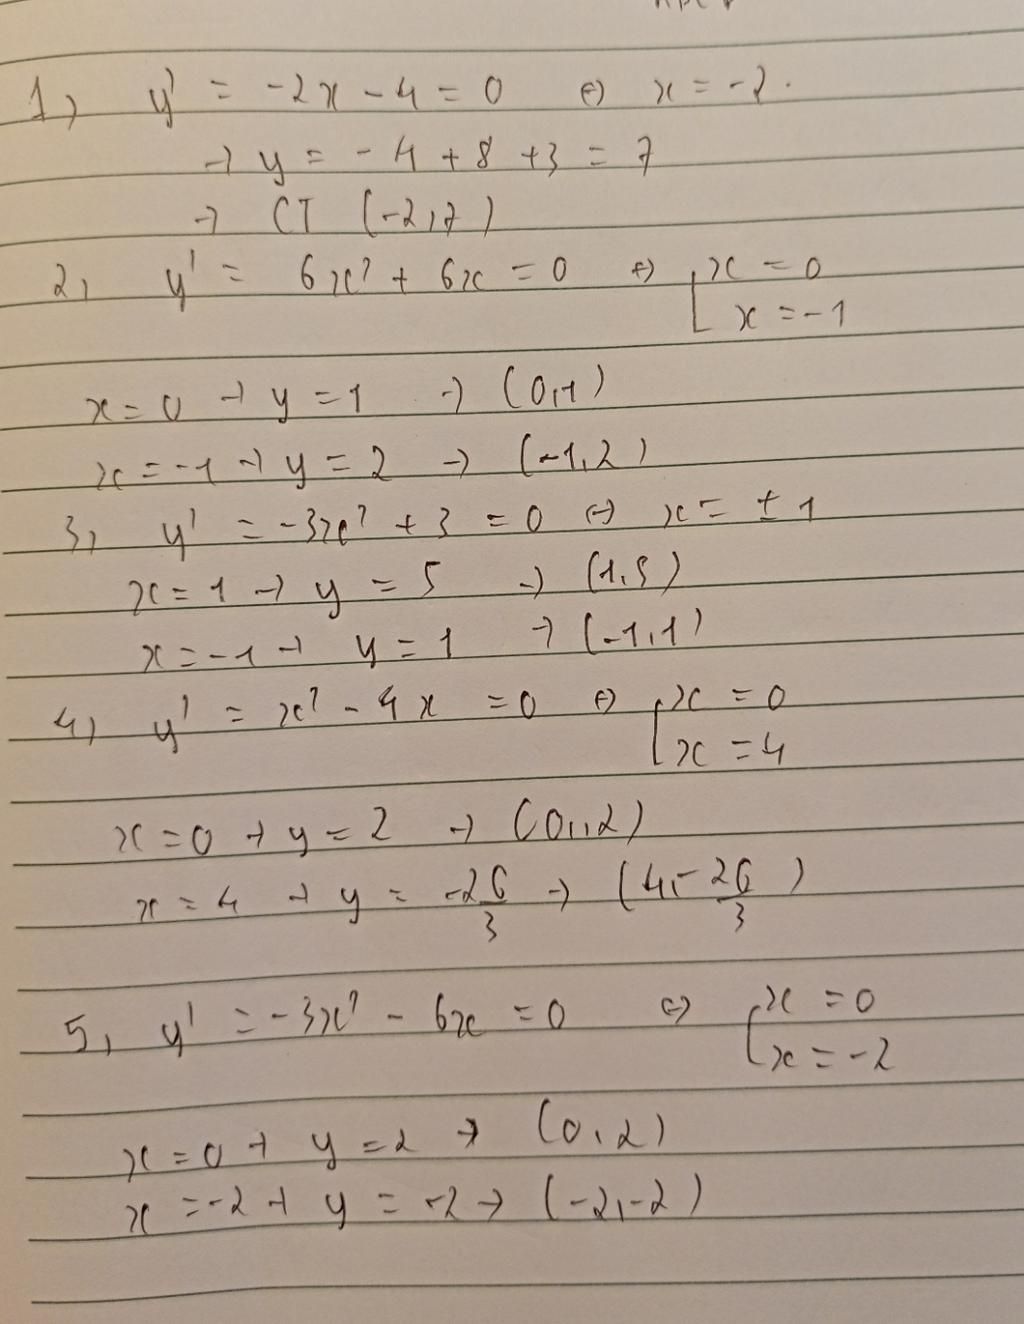 1, y' = -2x - 4 = 0 ⇔ x = -2.
→ y = -4 + 8 + 3 = 7
→ CT (-2,7)
2, y' = 6x² + 6x = 0 ⇔ [x = 0
x = -1
x = 0 → y = 1 → (0,1)
x = -1 → y = 2 → (-1,2)
3, y' = -3x² + 3 = 0 ⇔ x = ± 1
x = 1 → y = 5 → (1,5)
x = -1 → y = 1 → (-1,1)
4, y' = x² - 4x = 0 ⇔ [x = 0
x = 4
x = 0 → y = 2 → (0,,2)
x = 4 → y = -26/3 → (4,-26/3)
5, y' = -3x² - 6x = 0 ⇔ [x = 0
x = -2
x = 0 → y = 2 → (0,2)
x = -2 → y = -2 → (-2,-2)